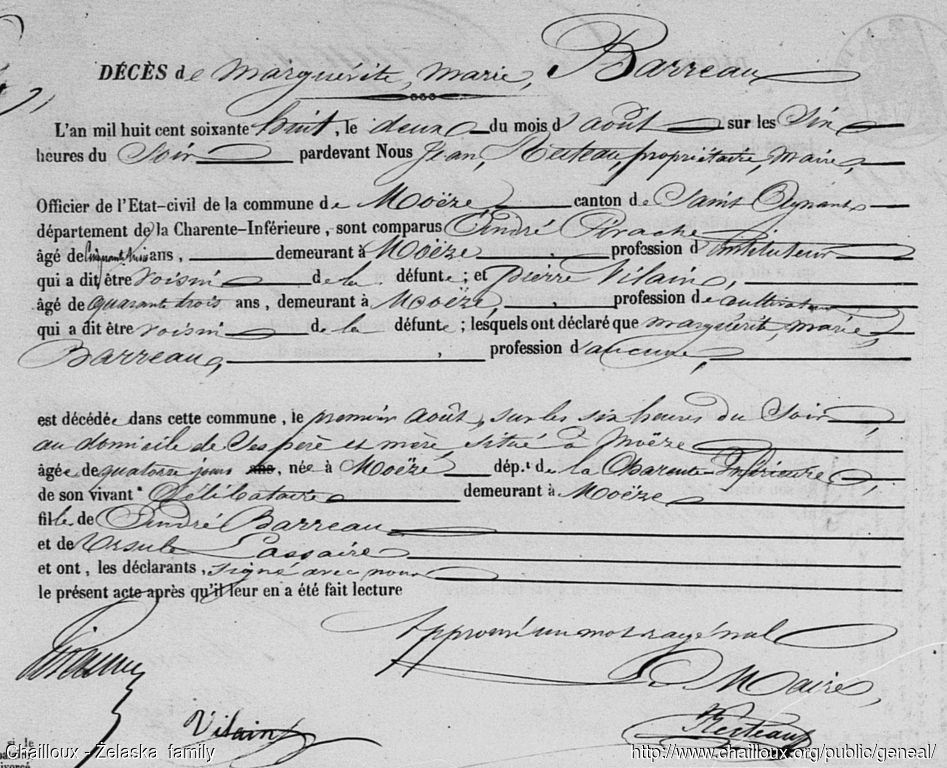 DÉCÈS de Marguérite, Marie, Barreau
L'an mil huit cent soixante huit, le deux du mois d'août sur les Six
heures du Soir pardevant Nous Jean, Resteau, propriétaire, Maire,
Officier de l'Etat-civil de la commune de Moëze canton de Saint Agnant
département de la Charente-Inférieure, sont comparus André
âgé de cinquante trois ans, demeurant à Moëze, profession d'instituteur
qui a dit être voisin de la défunte; et Pierre Vilain,
âgé de quarante trois ans, demeurant à Moëze, profession de cultivateur
qui a dit être voisin de la défunte; lesquels ont déclaré que Marguérite, Marie,
Barreau, profession d'aucune,
est décédée dans cette commune, le premier août, sur les six heures du Soir,
au domicile de Ses père et mère, situé à Moëze
âgée de quatorze jours ans, née à Moëze dép.t de la Charente-Inférieure,
de son vivant Célibataire demeurant à Moëze
fille de André Barreau
et de Ursule Lassaire
et ont, les déclarants, signé avec nous
le présent acte après qu'il leur en a été fait lecture
Approuvé un mot rayé nul
Le Maire,
Vilain
Resteau
si le
Chailloux - Zelaska family
http://www.chailloux.org/public/geneal/